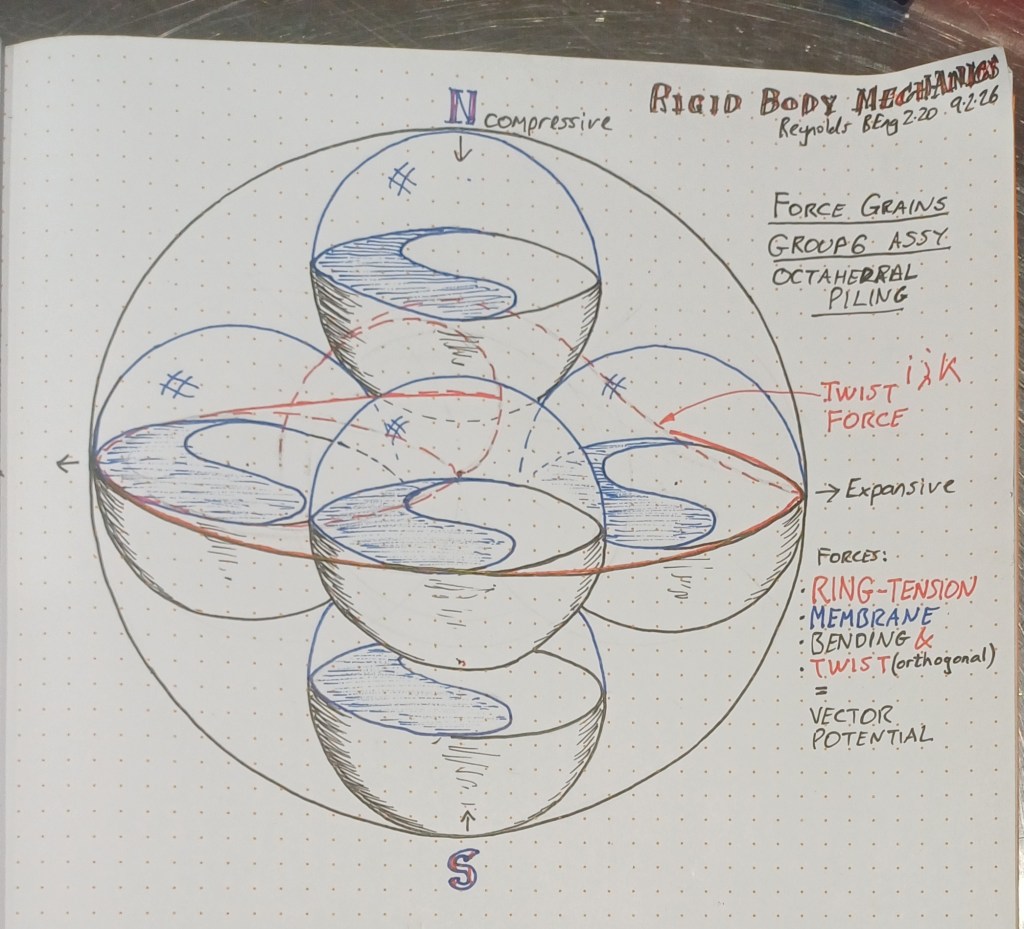 N
compressive
RIGID BODY MECHANICS
Reynolds BEng 2.20 9.2.26
FORCE GRAINS
GROUP6 ASSY.
OCTAHEDRAL
PILING
TWIST ijk
FORCE
Expansive
FORCES:
· RING-TENSION
· MEMBRANE
· BENDING &
· TWIST (orthogonal)
=
VECTOR
POTENTIAL
S